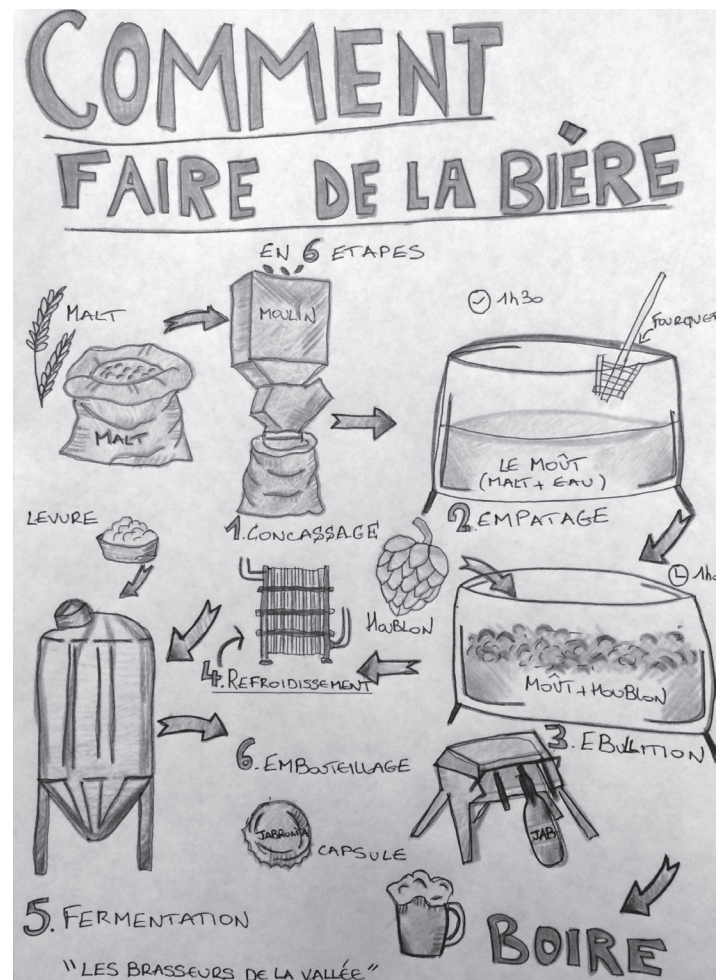 COMMENT
FAIRE DE LA BIÈRE
EN 6 ETAPES
MALT
MOULIN
1h30
FOURQUET
MALT
LE MOÛT
(MALT + EAU)
1. CONCASSAGE
2. EMPATAGE
LEVURE
HOUBLON
4. REFROIDISSEMENT
MOÛT + HOUBLON
3. EBULLITION
6. EMBOUTEILLAGE
CAPSULE
JAB
5. FERMENTATION
BOIRE
"LES BRASSEURS DE LA VALLÉE"